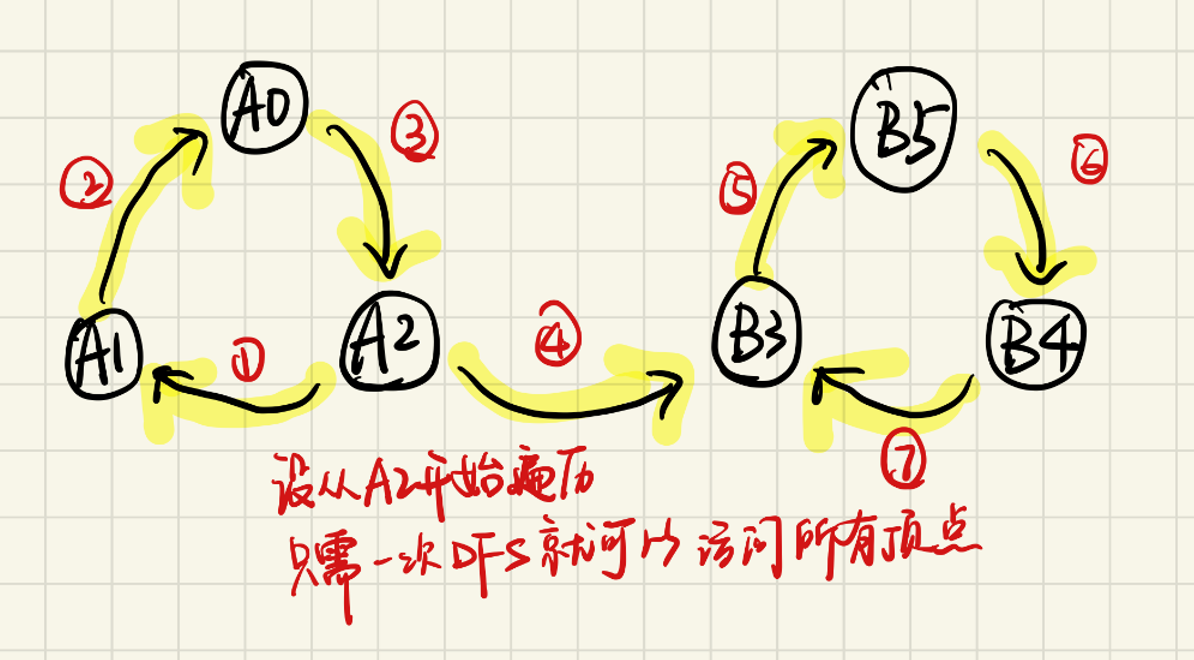 A0
B5
③
②
⑤
⑥
A1
①
A2
④
B3
B4
⑦
设从A2开始遍历
只需一次DFS就可以访问所有顶点